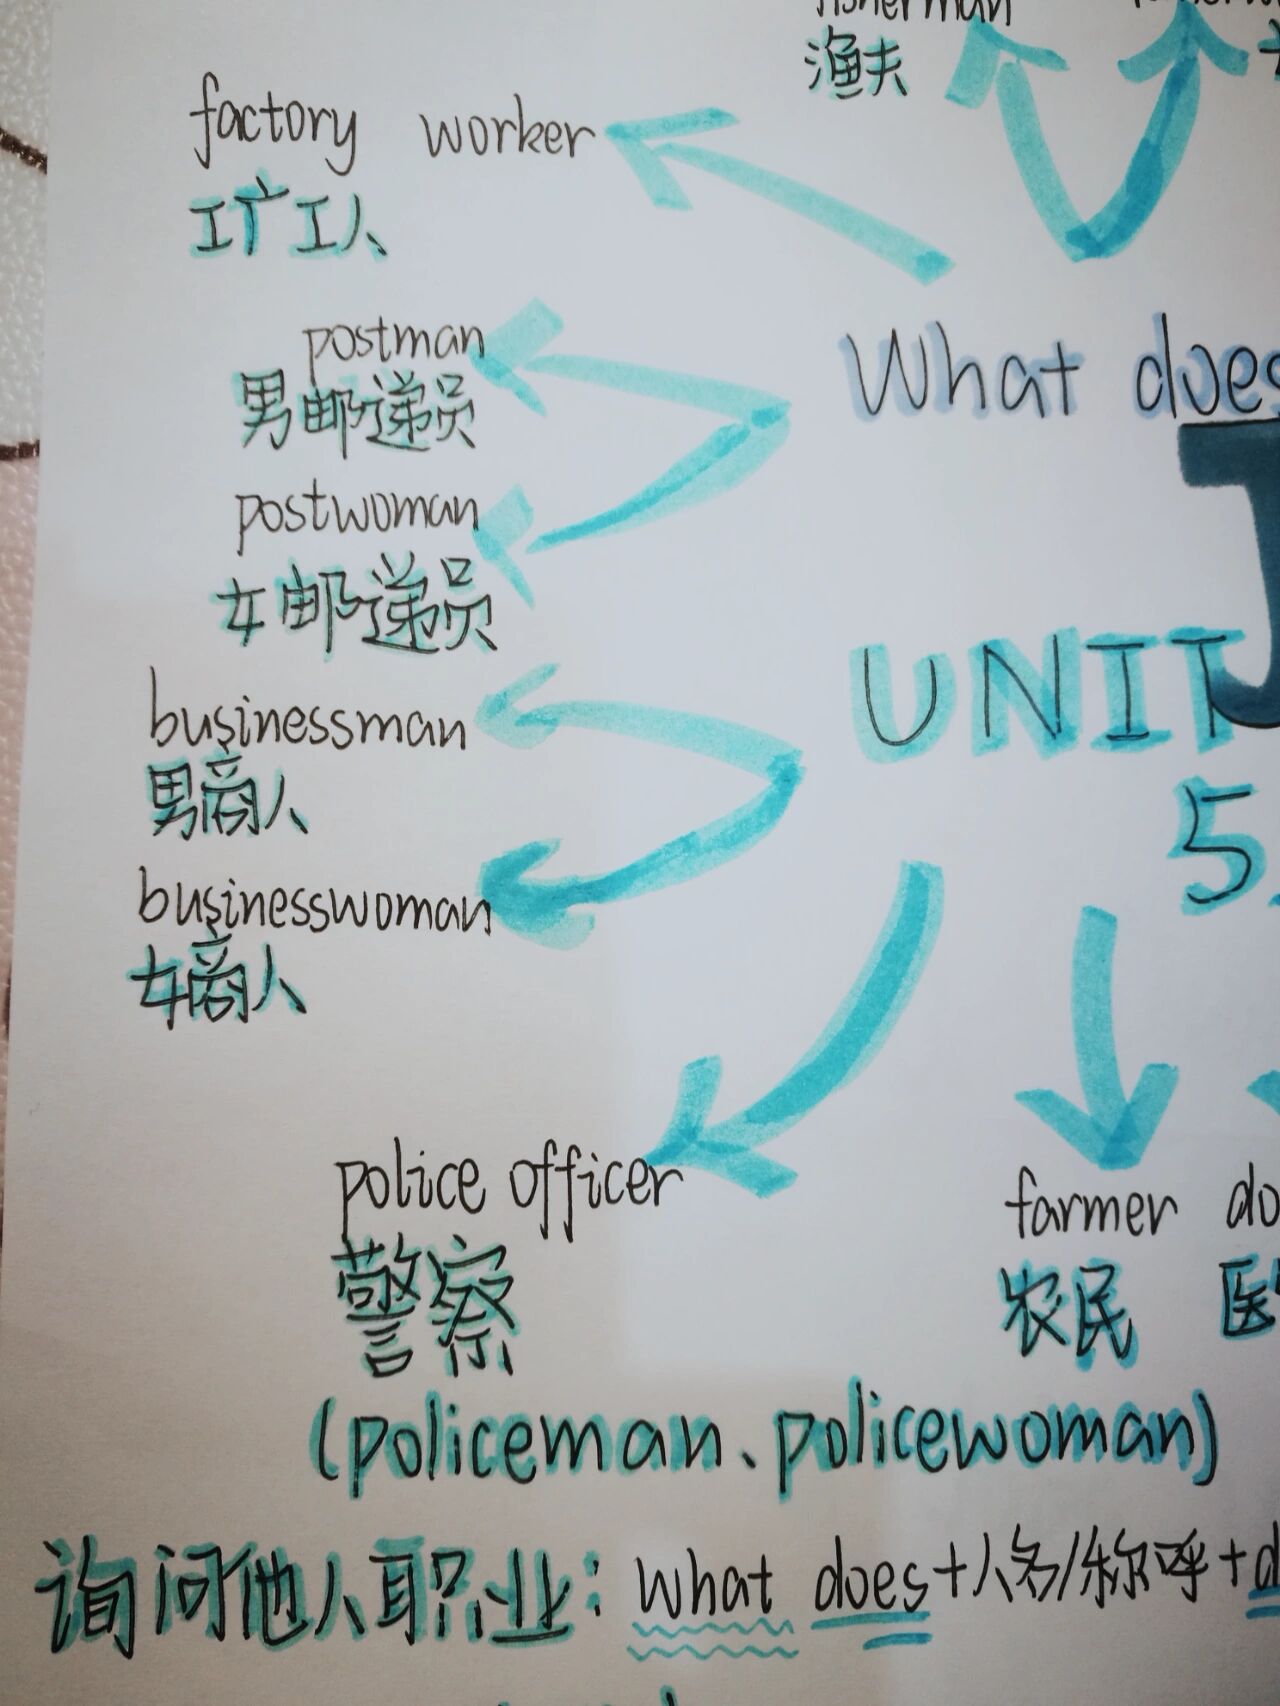 fisherman
渔夫
factory worker
工广工人
postman
男邮递员
postwoman
女邮递员
What does
UNIT
5
businessman
男商人
businesswoman
女商人
police officer
警察
farmer
农民 医
(policeman、policewoman)
询问他人职业：what does+人名/称呼+d